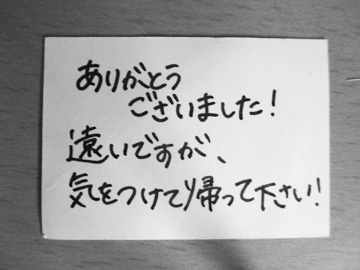 ありがとう
ございました!
遠いですが、
気をつけて帰って下さい!